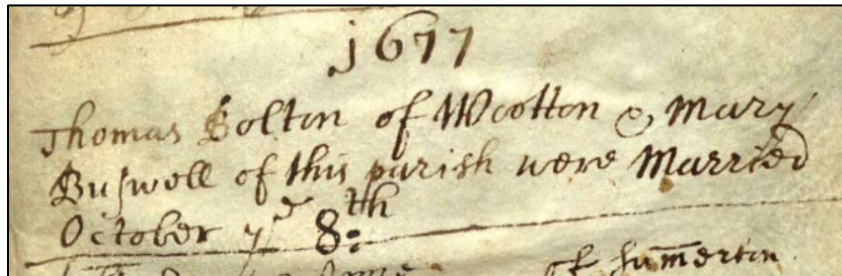 1677
Thomas Bolton of Wootton & Mary
Buswell of this parish were Married
October ye 8th
of Sumerton